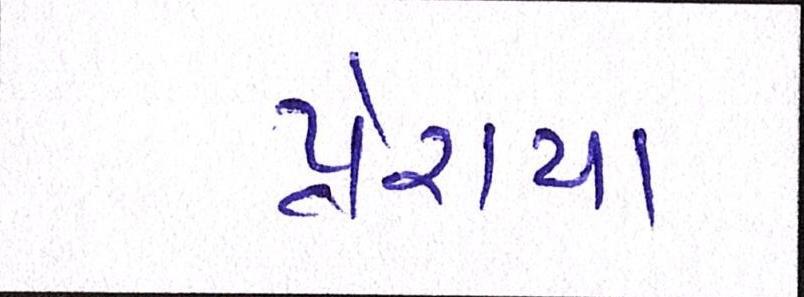 પ્રેરાયા